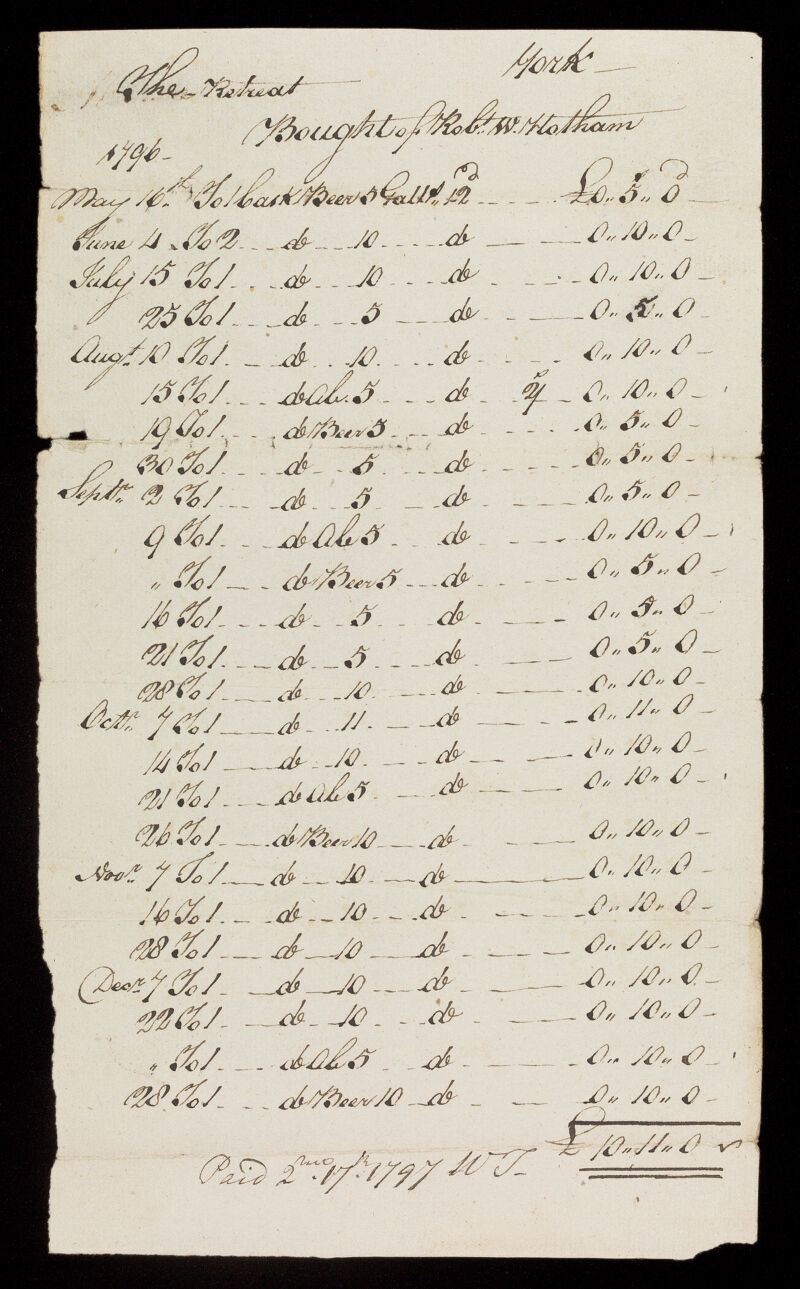 York —
The Retreat
Bought of Robt. W. Hotham
1796 —
May 16th To 1 Cask Beer 5 Galls. 12d £0 " 5s " 0d
June 4 To 2 do 10 do 0 " 10 " 0
July 15 To 1 do 10 do 0 " 10 " 0
25 To 1 do 5 do 0 " 5 " 0
Augt. 10 To 1 do 10 do 0 " 10 " 0
15 To 1 do Ale 5 do 2/ 0 " 10 " 0
19 To 1 do Beer 5 do 0 " 5 " 0
30 To 1 do 5 do 0 " 5 " 0
Septr. 2 To 1 do 5 do 0 " 5 " 0
9 To 1 do Ale 5 do 0 " 10 " 0
" To 1 do Beer 5 do 0 " 5 " 0
16 To 1 do 5 do 0 " 5 " 0
21 To 1 do 5 do 0 " 5 " 0
28 To 1 do 10 do 0 " 10 " 0
Octr. 7 To 1 do 11 do 0 " 11 " 0
14 To 1 do 10 do 0 " 10 " 0
21 To 1 do Ale 5 do 0 " 10 " 0
26 To 1 do Beer 10 do 0 " 10 " 0
Novr. 7 To 1 do 10 do 0 " 10 " 0
16 To 1 do 10 do 0 " 10 " 0
28 To 1 do 10 do 0 " 10 " 0
Decr. 7 To 1 do 10 do 0 " 10 " 0
22 To 1 do 10 do 0 " 10 " 0
" To 1 do Ale 5 do 0 " 10 " 0
28 To 1 do Beer 10 do 0 " 10 " 0
£ 10 " 11 " 0
Paid 2mo. 17th. 1797 W T